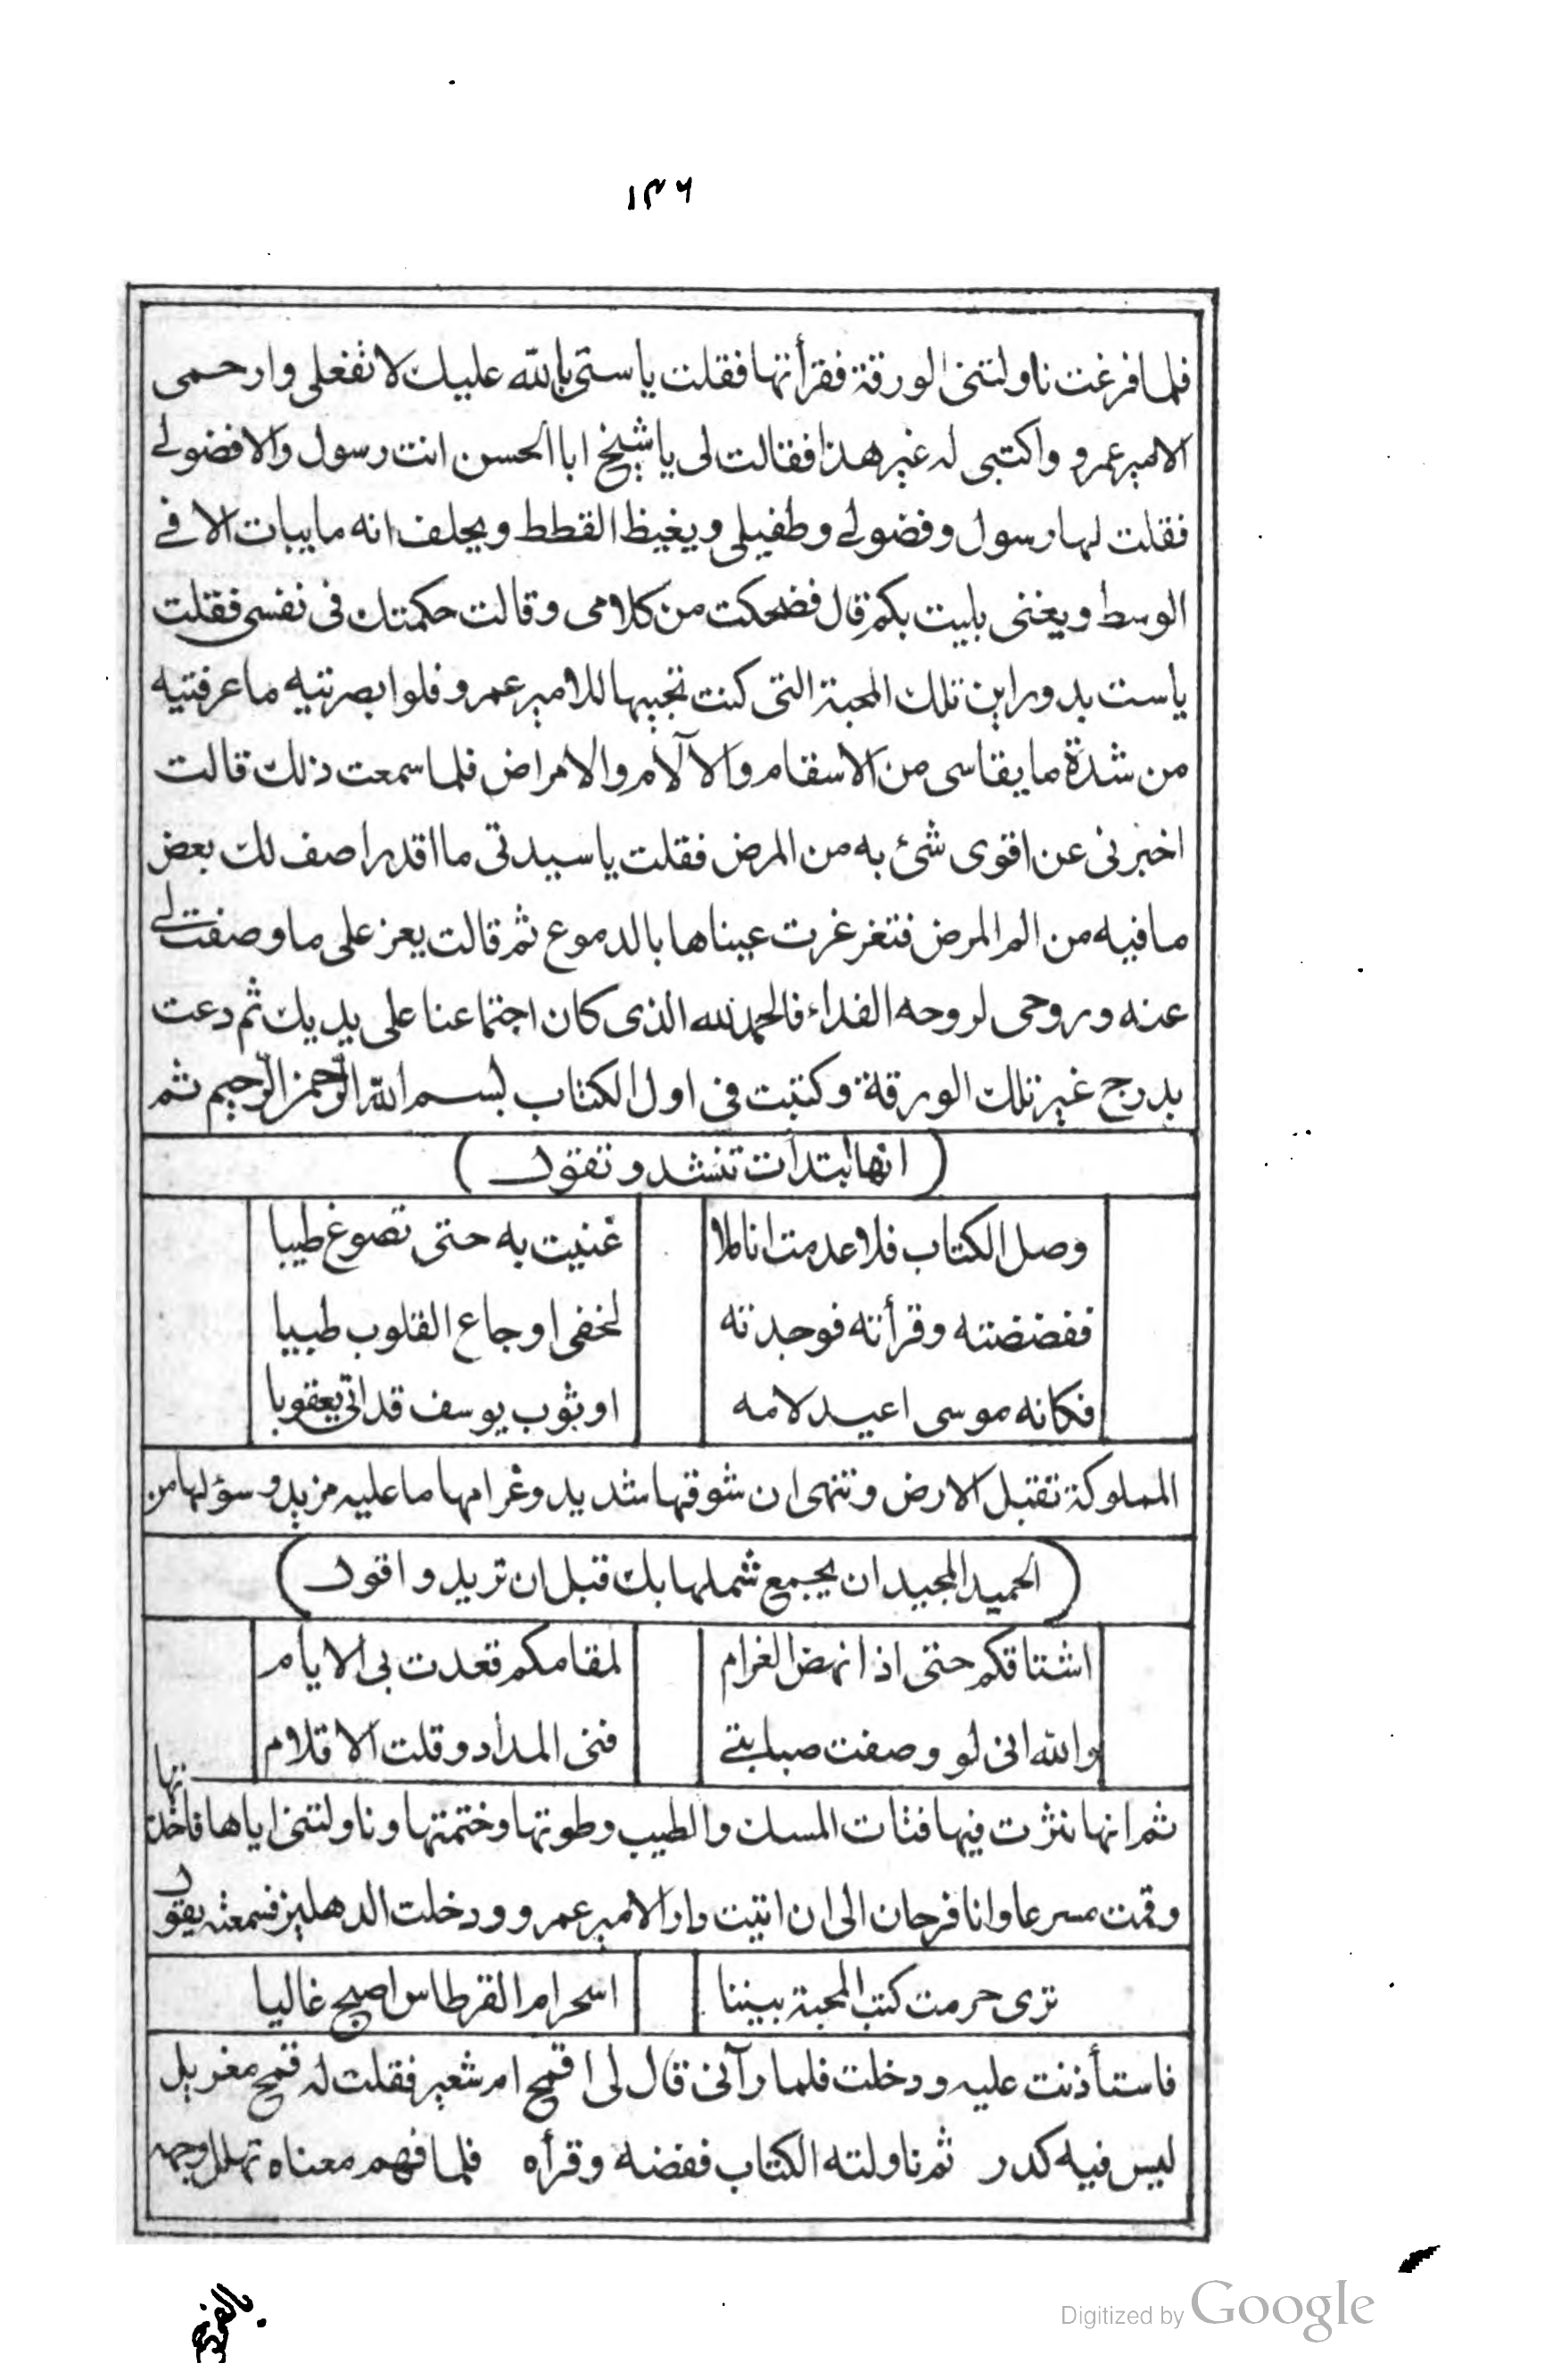 ١٣٦
فلما فرغت ناولتنى الورقة فقرأتها فقلت يا ستى بالله عليك لا تفعلى وارحمى
الامير عمرو واكتبى له غير هذا فقالت لى يا شيخ ابا الحسن انت رسول والا فضولى
فقلت لها رسول وفضولى وطفيلى ويغيظ القطط ويحلف انه ما يبات الا فى
الوسط ويغنى بليت بكم قال فضحكت من كلامى وقالت حكمتك فى نفسى فقلت
يا ست بدور اين تلك المحبة التى كنت تحبيها للامير عمرو فلو ابصرتيه ما عرفتيه
من شدة ما يقاسى من الاسقام والآلام والامراض فلما سمعت ذلك قالت
اخبرنى عن اقوى شئ به من المرض فقلت يا سيدتى ما اقدر اصف لك بعض
ما فيه من الم المرض فتغرغرت عيناها بالدموع ثم قالت يعز على ما وصفت لى
عنه وروحى لروحه الفداء فالحمد لله الذى كان اجتماعنا على يديك ثم دعت
بدرج غير تلك الورقة وكتبت فى اول الكتاب بسم الله الرحمن الرحيم ثم
( انها ابتدأت تنشد وتقول )
وصل الكتاب فلا عدمت اناملا غنيت به حتى تصوغ طيبا
ففضضته وقرأته فوجدته لخفى اوجاع القلوب طبيبا
فكانه موسى اعيد لامه او ثوب يوسف قد اتى يعقوبا
المملوكة تقبل الارض وتنهى ان شوقها شديد وغرامها ما عليه مزيد وسؤلها من
( الحميد المجيد ان يجمع شملها بك قبل ان تريد واقول )
اشتاقكم حتى اذا نهض الغرام لمقامكم قعدت بى الايام
والله انى لو وصفت صبابتى فنى المداد وقلت الاقلام
ثم انها نثرت فيها فتات المسك والطيب وطوتها وختمتها وناولتنى اياها فاخذتها
وقمت مسرعا وانا فرحان الى ان اتيت دار الامير عمرو ودخلت الدهليز فسمعته يقول
ترى حرمت كتب المحبة بيننا اسحرام القرطاس اصبح غاليا
فاستأذنت عليه ودخلت فلما رآنى قال لى اقمح ام شعير فقلت له قمح مغربل
ليس فيه كدر ثم ناولته الكتاب ففضه وقرأه فلما فهم معناه تهلل وجهه
بالفرح
Digitized by Google